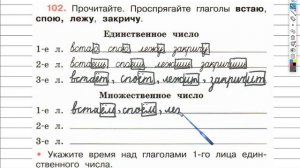 102. Прочитайте. Проспрягайте глаголы встаю,
спою, лежу, закричу.
Единственное число
1-е л. встаю, спою, лежу, закричу
2-е л. встаёшь, споёшь, лежишь, закричишь
3-е л. встаёт, споёт, лежит, закричит
Множественное число
1-е л. встаём, споём, леж
2-е л.
3-е л.
• Укажите время над глаголами 1-го лица един-
ственного числа.